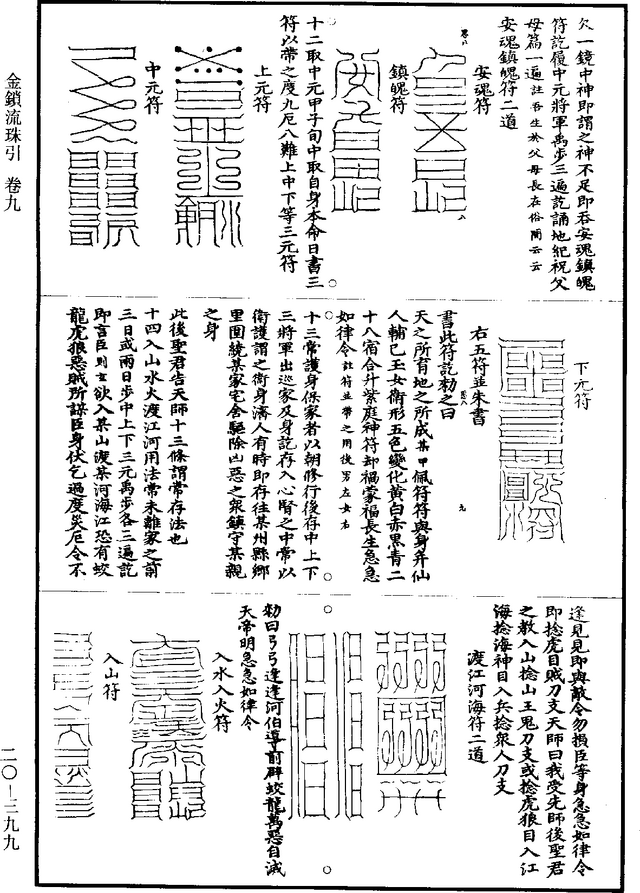 欠一鏡中神即謂之神不足即吞安魂鎮魄
符訖履中元將軍禹步三遍訖誦地紀祝父
母篇一遍註吾生於父母長在俗間云云
安魂鎮魄符二道
安魂符
鎮魄符
十二取中元甲子旬中取自身本命日書三
符以帶之度九厄八難上中下等三元符
上元符
中元符
下元符
右五符並朱書
書此符訖勑之曰
天之所有地之所成某甲佩符符與身并仙
人輔己玉女衛形五色變化黃白赤黑青二
十八宿合并紫庭神符却禍蒙福長生急急
如律令註符並帶之用後男左女右
十三常護身保家者以朝修行後存中上下
三將軍出巡家及身訖存入心腎之中常以
衛護謂之衛身濟人有時即存往某州縣鄉
里圍繞某家宅舍驅除凶惡之衆鎮守某親
之身
此後聖君告天師十三條謂常存法也
十四入山水火渡江河用法常未離家之前
三日或兩日步中上下三元禹步各三遍訖
即言臣則玄欲入某山渡某河海江恐有蛟
龍虎狼惡賊所謀臣身伏乞過度災厄令不
逢見見即與敵令勿損臣等身急急如律令
即捻虎目賊刀支天師曰我受先師後聖君
之教入山捻山王鬼刀支或捻虎狼目入江
海捻海神目入兵捻衆人刀支
渡江河海符二道
勑曰弓弓逢逢河伯導前辟蛟龍萬惡自滅
天帝明急急如律令
入水入火符
入山符
金鎖流珠引 卷九
二〇—三九九